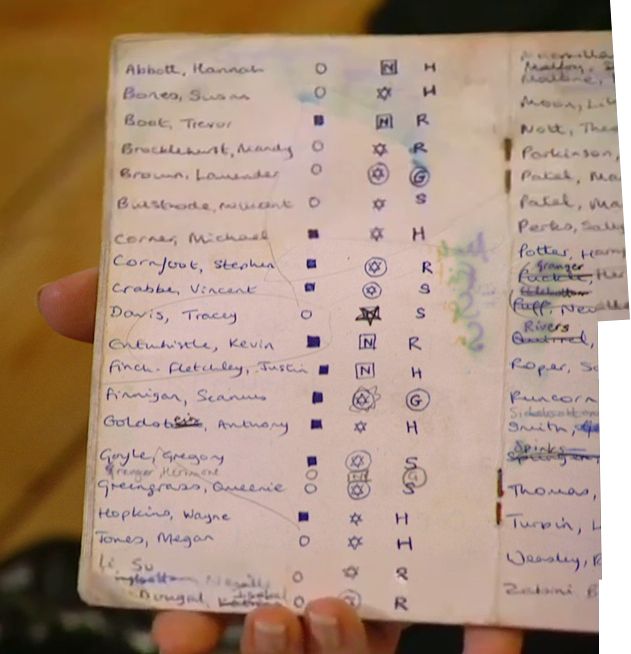 Abbott, Hannah N H
Bones, Susan H
Boot, Trevor N R
Brocklehurst, Mandy R
Brown, Lavender G
Bulstrode, Millicent S
Corner, Michael H
Cornfoot, Stephen R
Crabbe, Vincent S
Davis, Tracey S
Entwhistle, Kevin N R
Finch-Fletchley, Justin N H
Finnigan, Seamus G
Goldstein, Anthony H
Goyle, Gregory S
Granger, Hermione N G
Greengrass, Queenie S
Hopkins, Wayne H
Jones, Megan H
Li, Su R
Dougal, Isobel R
Malfoy,
Malone,
Moon, Li
Nott, Theo
Parkinson,
Patel, Ma
Patel, Ma
Perks, Sally
Potter, Harry
Granger
Puff, Neville
Rivers
Quirrel,
Roper, S
Runcorn
Sidebottom
Smith,
Spinks
Thomas,
Turpin, L
Weasley, R
Zabini B